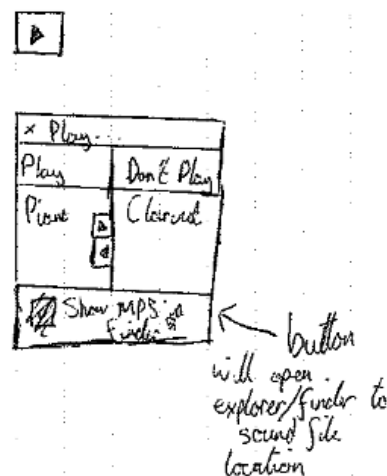 × Play...
Play Don't Play
Piano Clarinet
Show MP3 in
Finder
button
will open
explorer/finder to
sound file
location